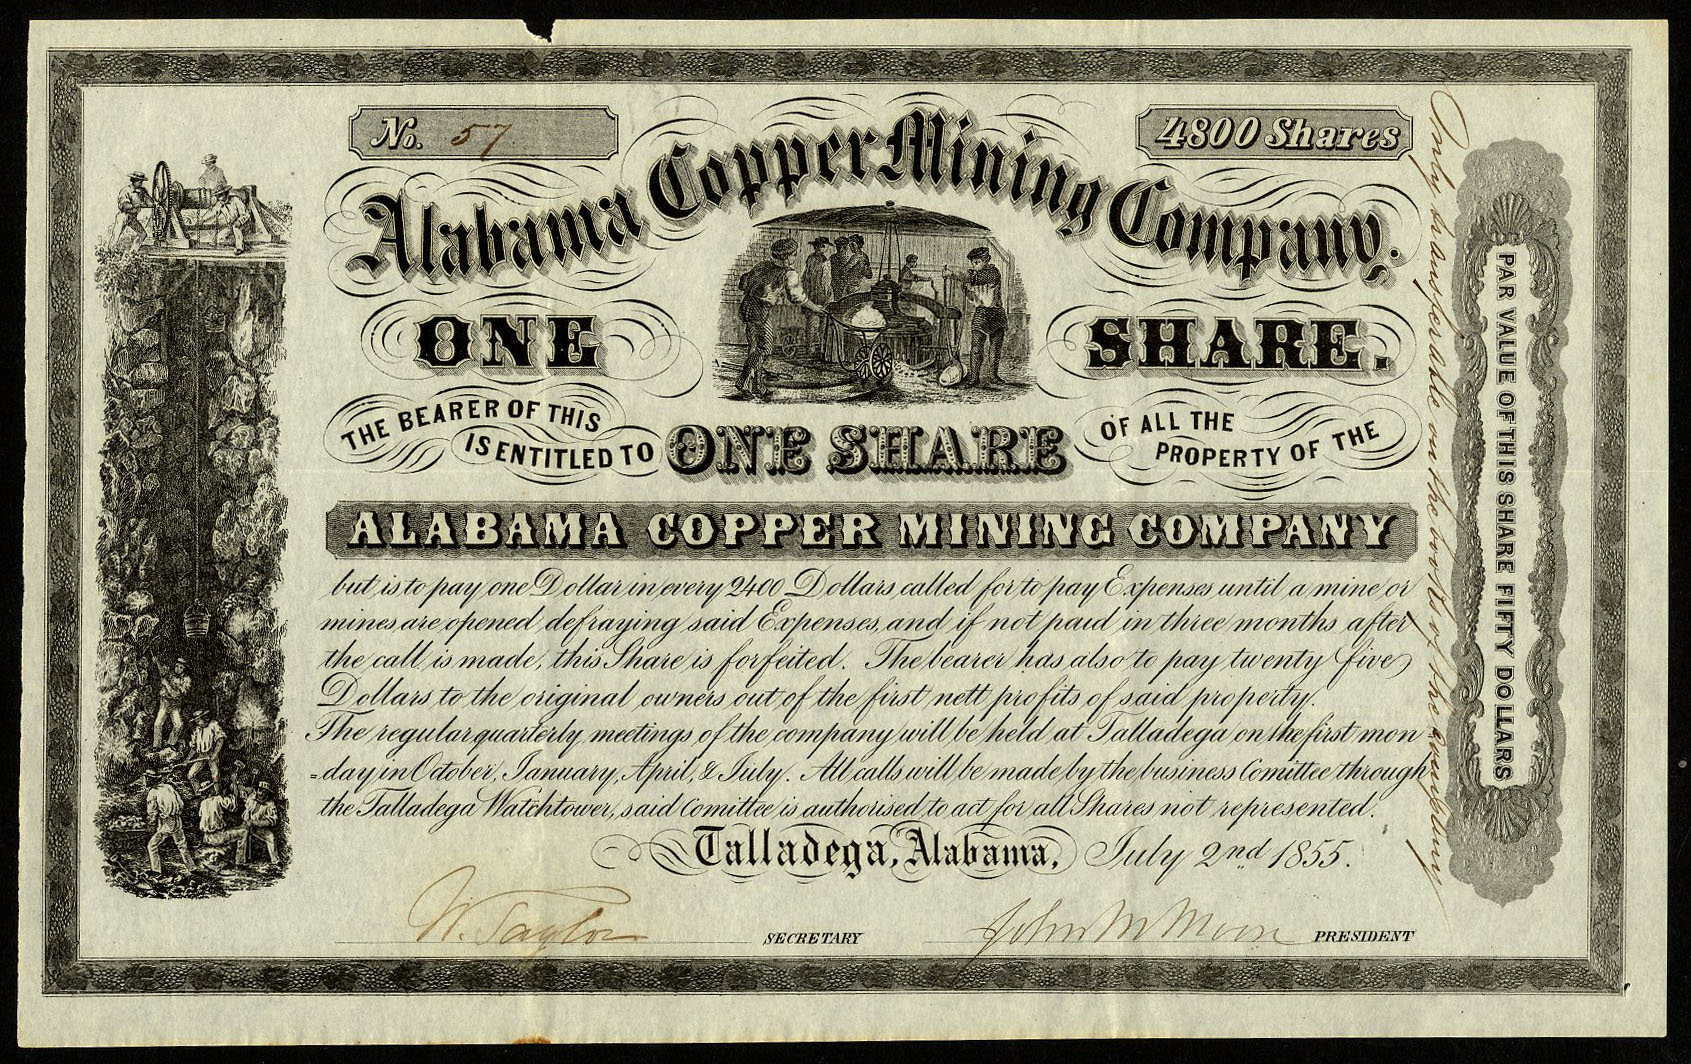 No. 57
4800 Shares
Alabama Copper Mining Company.
ONE SHARE.
THE BEARER OF THIS
IS ENTITLED TO ONE SHARE OF ALL THE
PROPERTY OF THE
ALABAMA COPPER MINING COMPANY
but is to pay one Dollar in every 2400 Dollars called for to pay Expenses until a mine or
mines are opened, defraying said Expenses, and if not paid in three months after
the call is made, this Share is forfeited. The bearer has also to pay twenty five
Dollars to the original owners out of the first nett profits of said property.
The regular quarterly meetings of the company will be held at Talladega on the first mon
=day in October, January, April, & July. All calls will be made by the business Comittee through
the Talladega Watchtower, said Comittee is authorised to act for all Shares not represented.
Talladega, Alabama, July 2nd 1855.
W. Taylor SECRETARY
John M Moore PRESIDENT
Only transferable on the books of the company
PAR VALUE OF THIS SHARE FIFTY DOLLARS